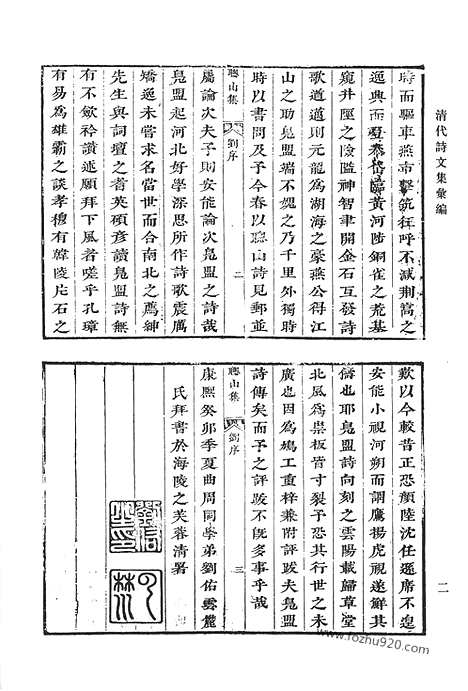 清代詩文集彙編
時而驅車燕市擊筑狂呼不減荆高之
遊興而夏泰岱臨黃河陟銅雀之荒基
窺井陘之險隘神智聿開金石互發詩
歌道遒則元龍為湖海之豪燕公得江
山之助鳧盟端不媿之乃千里外獨時
時以書問及予今春以聰山詩見郵並
聰山集
劉序
二
屬論次夫予則安能論次鳧盟之詩哉
鳧盟起河北好學深思所作詩歌震厲
矯逸未嘗求名當世而合南北之薦紳
先生與詞壇之耆英碩彥讀鳧盟詩無
有不歛衿讚述願拜下風者嗟乎孔璋
有易為雄霸之談孝穆有韓陵片石之
歎以今較昔正恐顏陸沈任遜席不遑
安能小視河朔而謂鷹揚虎視遂鮮其
儔也耶鳧盟詩向刻之雲陽載歸草堂
北風為祟板皆寸裂予恐其行世之未
廣也因為鳩工重梓兼附評跋夫鳧盟
詩傳矣而予之評跋不旣多事乎哉
聰山集
劉序
三
康熙癸卯季夏曲周同學弟劉佑雲麓
氏拜書於海陵之芙蓉清署
二
www.fozhu920.com